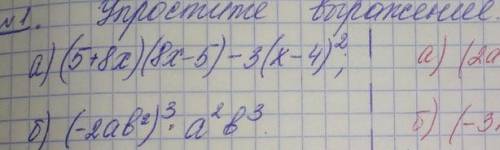 №1. Упростите выражение
а) (5+8x)(8x-5)-3(x-4)²; а) (2a
б) (-2ab²)³·a²b³. б) (-3